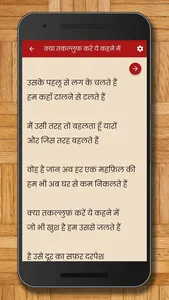 क्या तकल्लुफ करे ये कहने में
उसके पहलू से लग के चलते हैं
हम कहाँ टालने से टलते हैं
मैं उसी तरह तो बहलता हूँ यारों
और जिस तरह बहलते हैं
वोह है जान अब हर एक महफ़िल की
हम भी अब घर से कम निकलते हैं
क्या तकल्लुफ़ करें ये कहने में
जो भी खुश है हम उससे जलते हैं
है उसे दूर का सफ़र दरपेश